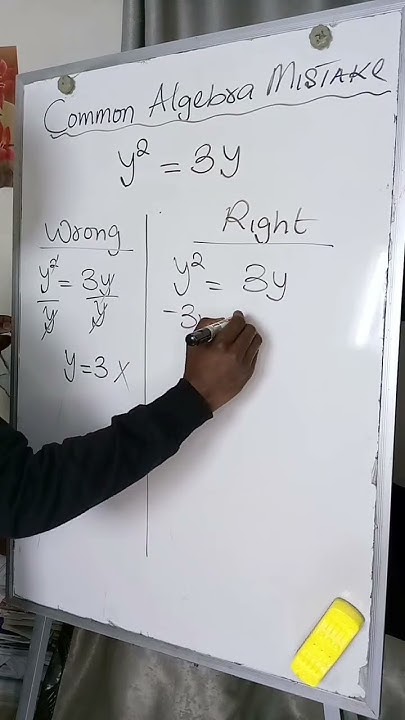 Common Algebra MISTAKE
y² = 3y
Wrong
y² = 3y
y y
y=3 x
Right
y² = 3y
-3